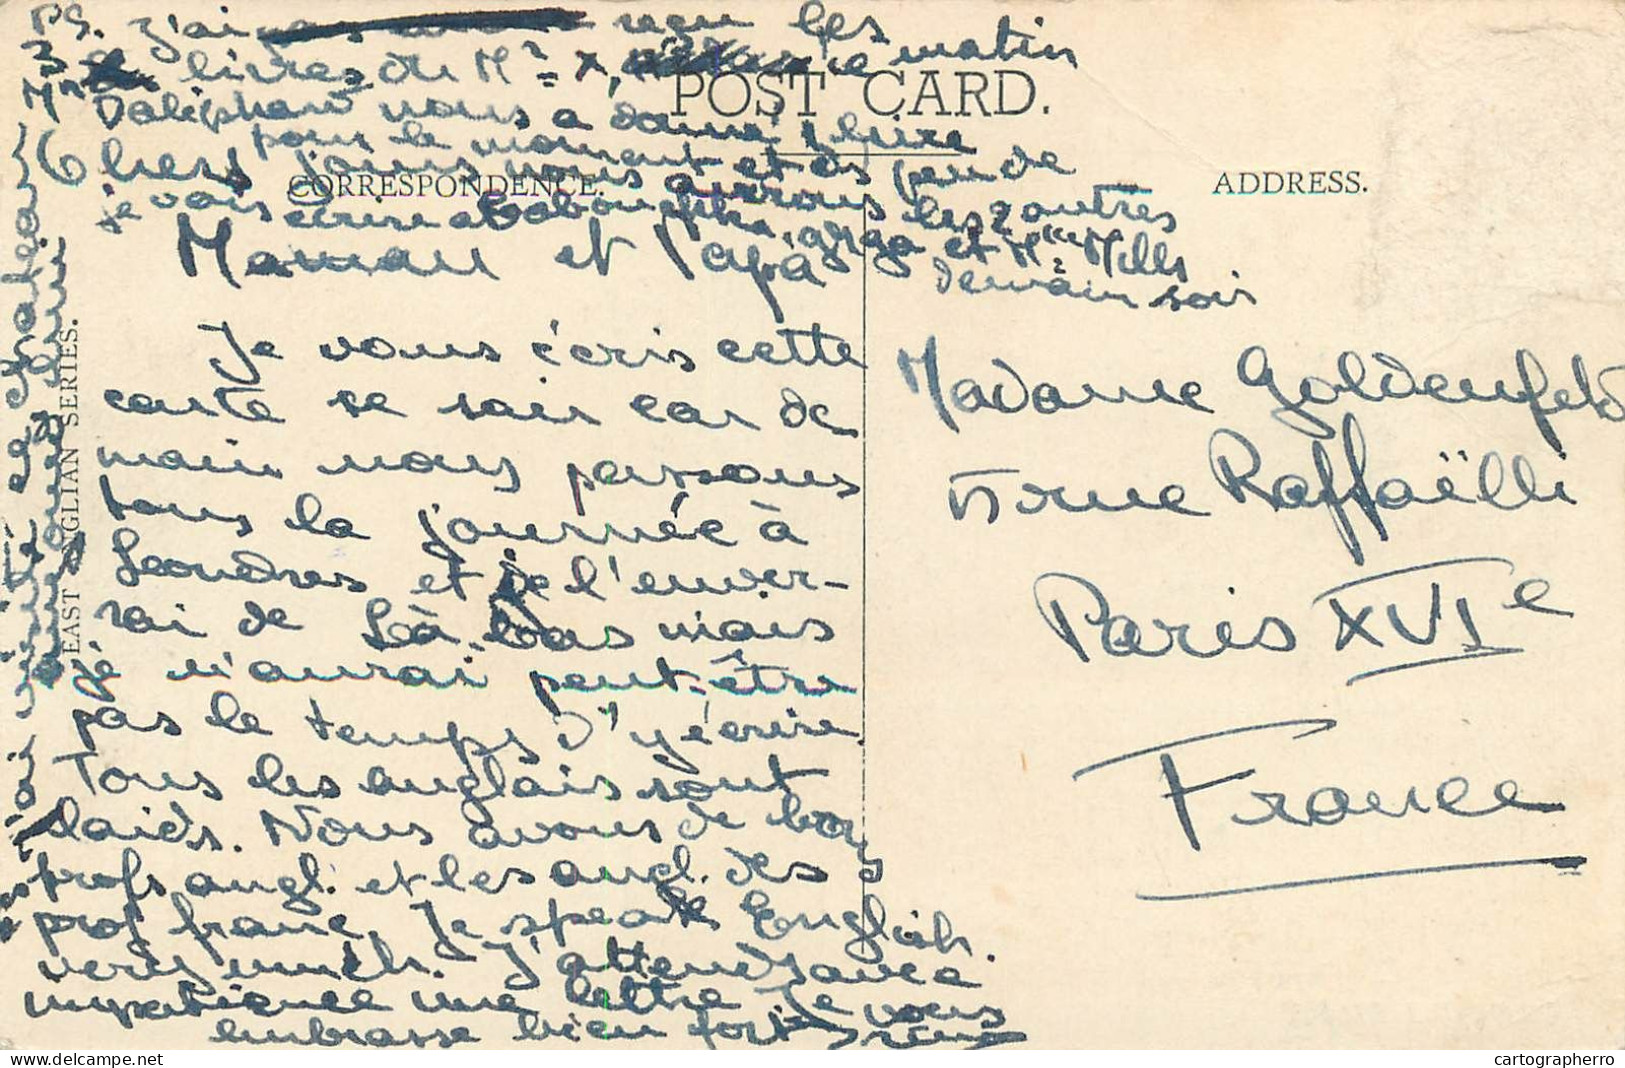 PS. j'ai reçu les
livres de ce matin
nous a donné 1 livre
pour le moment et ds peu de
jours nous aurons les 2 autres
je vais écrire et Mlle Mills
demain soir
POST CARD.
CORRESPONDENCE.
ADDRESS.
Chers
Maman et Papa
Je vous écris cette
carte ce soir car de
main nous passons
tous la journée à
Londres et je l'enver-
rai de Là, bas mais
je n'aurai peut-être
pas le temps d'y écrire.
Tous les anglais sont
laids. Nous avons de bons
profs angl. et les angl. des
prof franç. Je speak English.
very much. J'attends avec
impatience une lettre Je vous
embrasse bien fort
j'ai visité ce château
EAST ANGLIAN SERIES.
Madame Goldenfeld
5 rue Raffaëlli
Paris XVIe
France
cartographerro